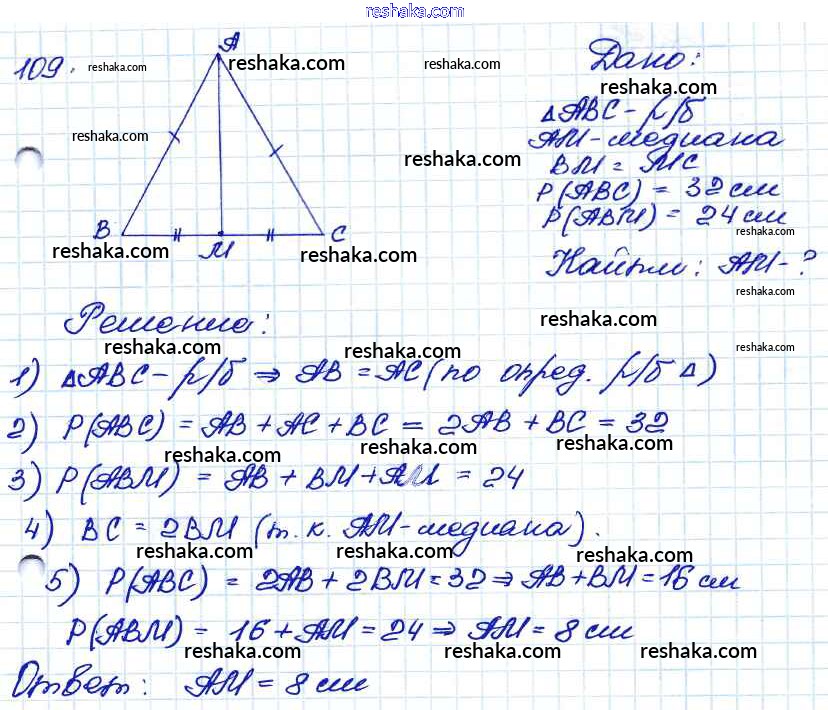 reshaka.com
109. reshaka.com
A
reshaka.com
reshaka.com
Дано:
reshaka.com
reshaka.com
△ABC - р/б
AM - медиана
reshaka.com
BM = MC
P(ABC) = 32 см
P(ABM) = 24 см
reshaka.com
B
M
C
reshaka.com
reshaka.com
Найти: AM - ?
reshaka.com
Решение:
reshaka.com
reshaka.com
reshaka.com
reshaka.com
1) △ABC - р/б ⇒ AB = AC (по опред. р/б △)
reshaka.com
reshaka.com
2) P(ABC) = AB + AC + BC = 2AB + BC = 32
reshaka.com
reshaka.com
reshaka.com
3) P(ABM) = AB + BM + AM = 24
reshaka.com
reshaka.com
4) BC = 2BM (т.к. AM - медиана).
reshaka.com
reshaka.com
reshaka.com
5) P(ABC) = 2AB + 2BM = 32 ⇒ AB + BM = 16 см
reshaka.com
reshaka.com
reshaka.com
P(ABM) = 16 + AM = 24 ⇒ AM = 8 см
reshaka.com
reshaka.com
reshaka.com
Ответ: AM = 8 см